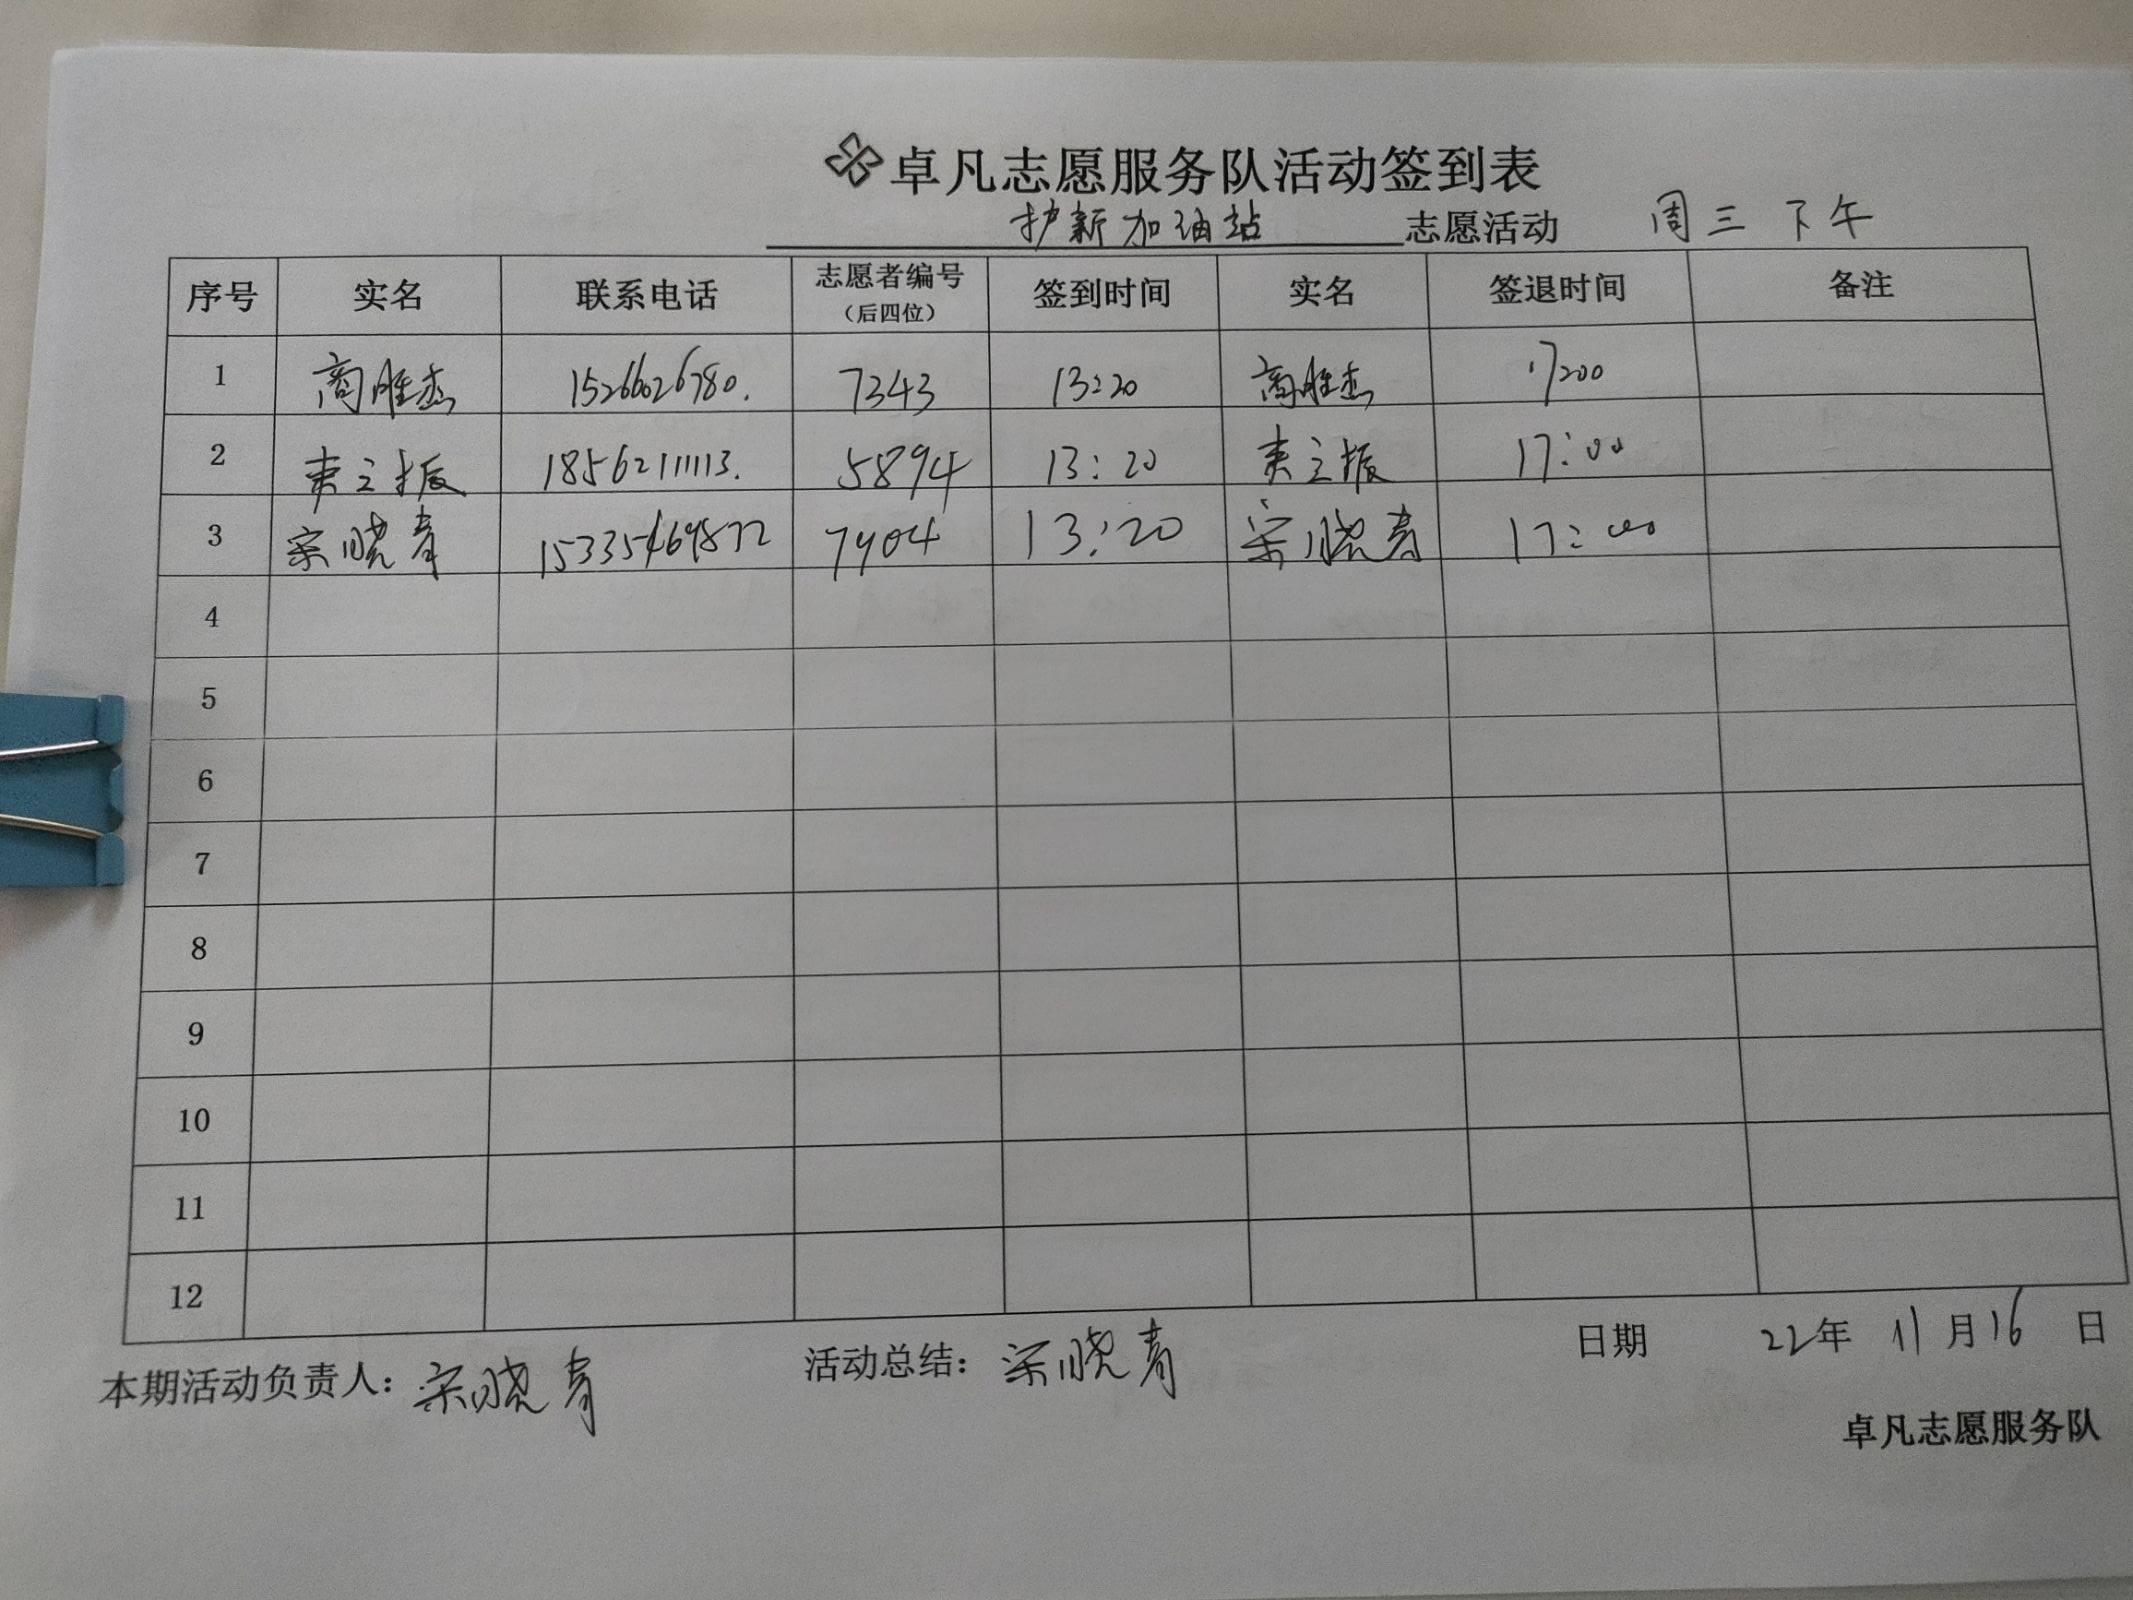 卓凡志愿服务队活动签到表
护新加油站 志愿活动 周三下午
序号 实名 联系电话 志愿者编号（后四位） 签到时间 实名 签退时间 备注
1 商胜杰 15266026780. 7343 13:20 商胜杰 17:00
2 立振 18562111113. 5894 13:20 立振 17:00
3 宋晓青 15335469572 7904 13:20 宋晓青 17:00
4
5
6
7
8
9
10
11
12
本期活动负责人：宋晓青 活动总结：宋晓青 日期 22年11月16日
卓凡志愿服务队